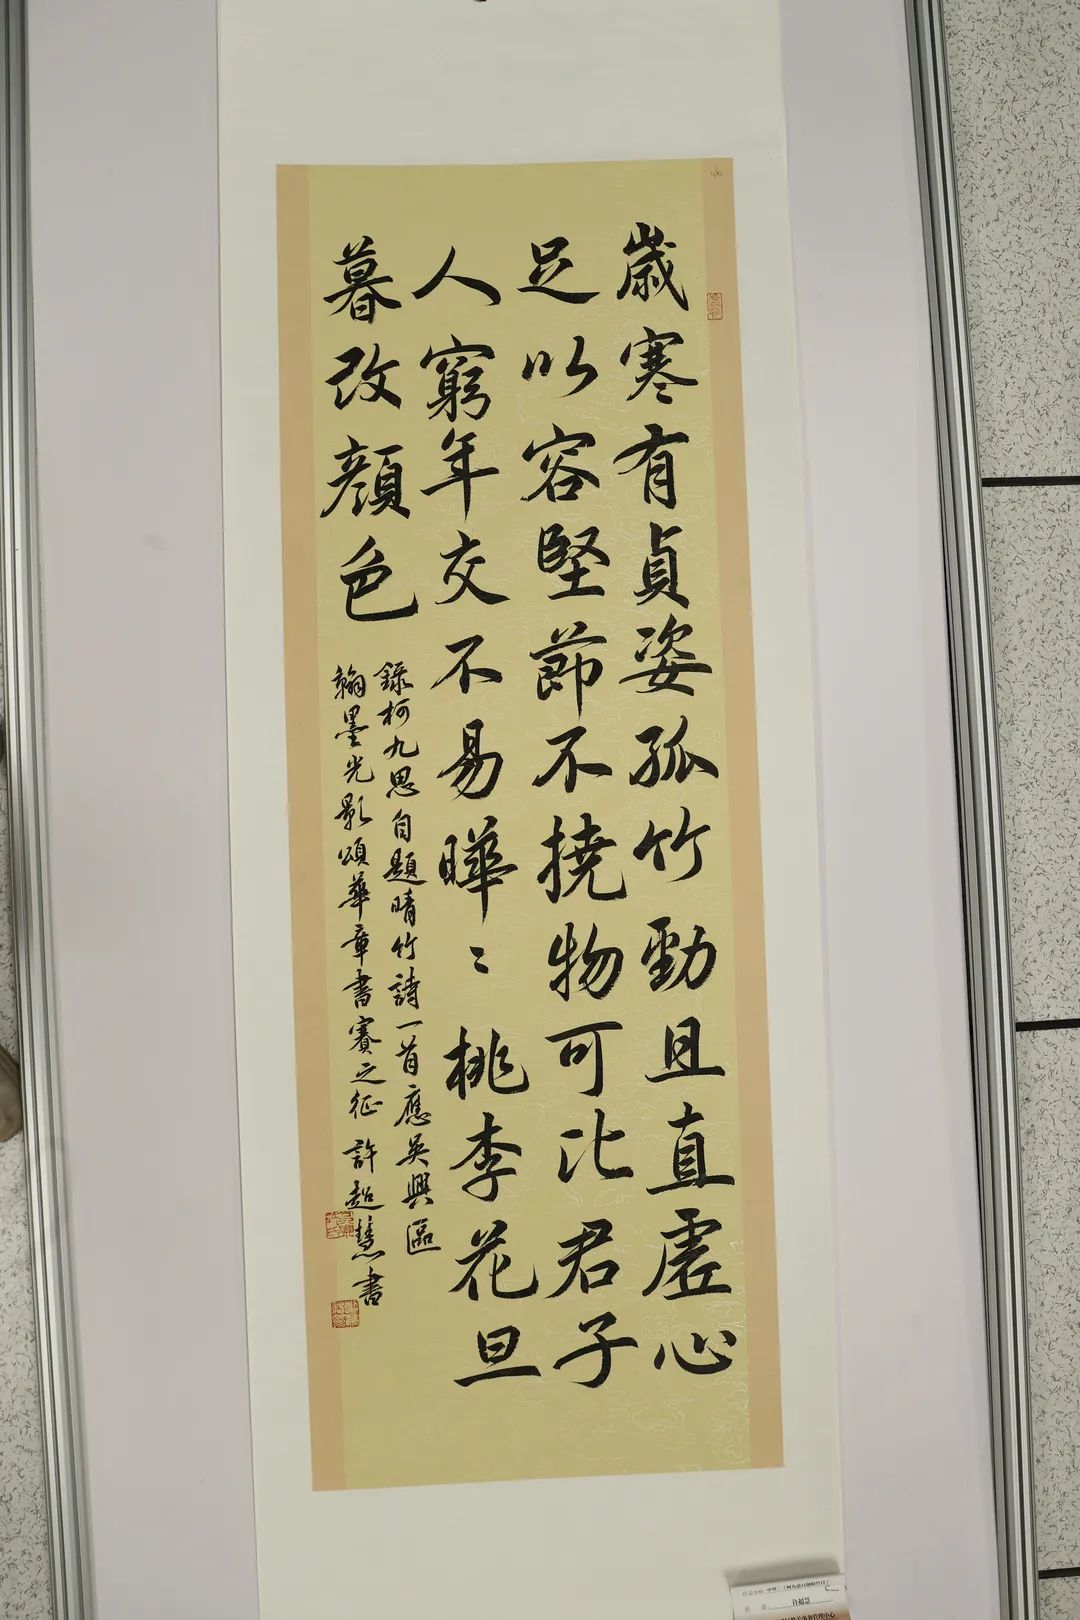 歲寒有貞姿孤竹勁且直虛心
足以容堅節不撓物可比君子
人窮年交不易曄〻桃李花旦
暮改顔色
錄柯九思自題晴竹詩一首應吳興區
翰墨光影頌華章書賽之征 許超慧書
許超慧